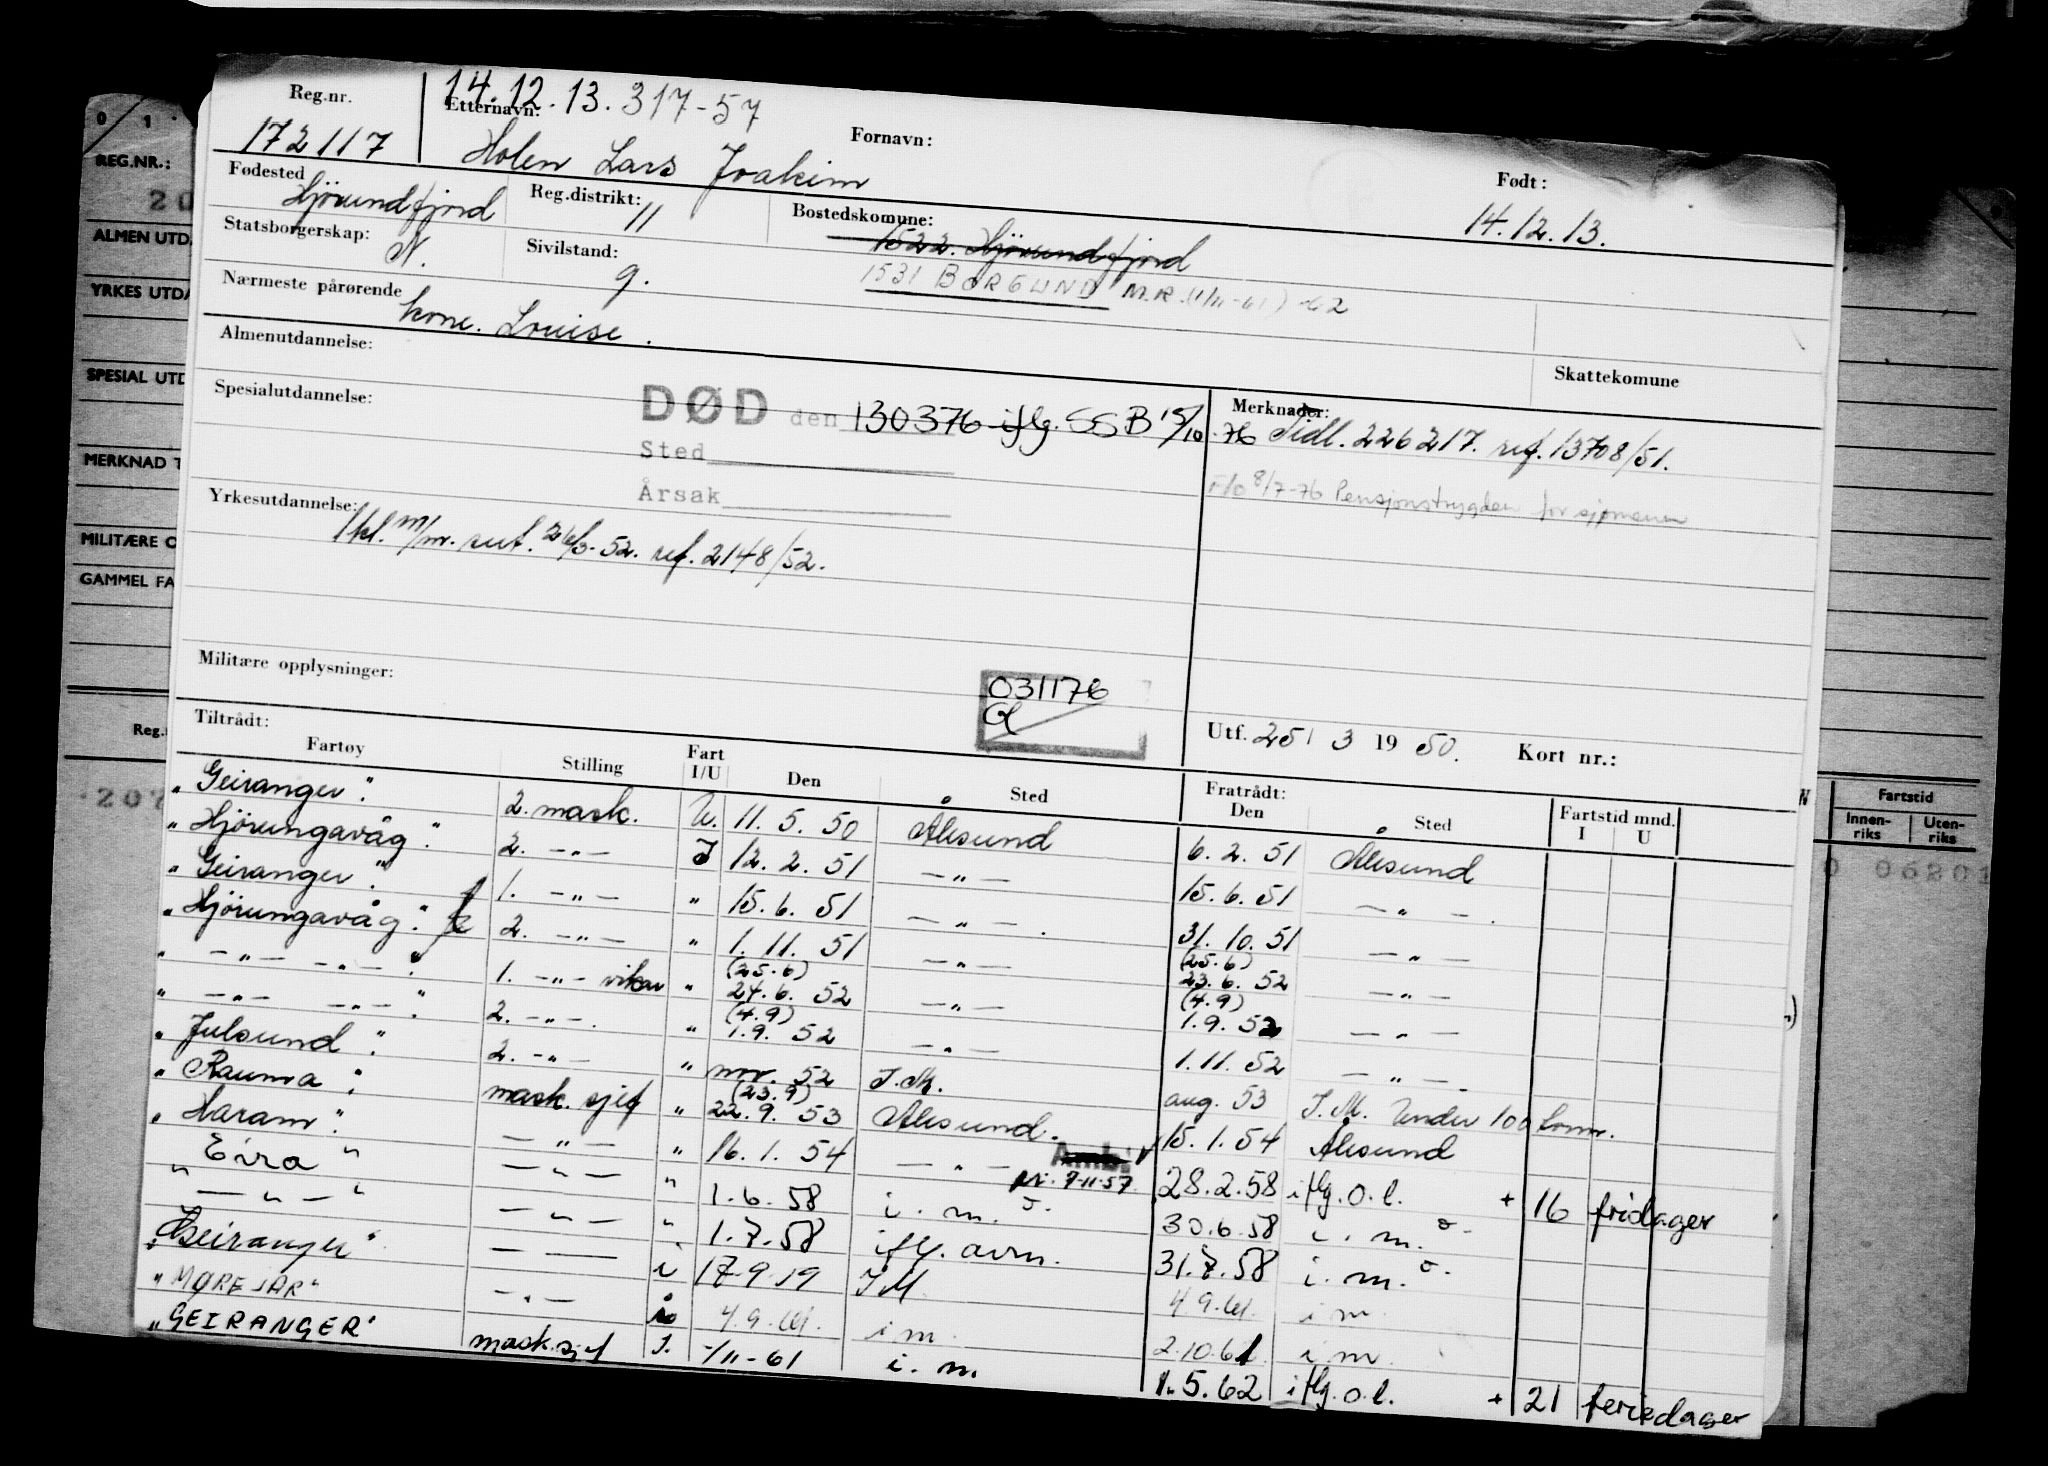 14.12.13. 317-57
Reg.nr. Etternavn: Fornavn: Født:
172117 Holen Lars Joakim 14.12.13.
Fødested Reg.distrikt: Bostedskomune:
Hjørundfjord 11 1522. Hjørundfjord
Statsborgerskap: Sivilstand: 1531 BORGUND M.R. (1/11-61) -62
N. g.
Nærmeste pårørende
kone. Louise.
Almenutdannelse: Skattekomune
Spesialutdannelse: DØD den 130376 iflg. SSB 15/10 -76 Merknader:
Tidl. 226217. ref. 13708/51.
Sted
8/7-76 Pensjonstrygden for sjømenn
Årsak
Yrkesutdannelse:
1 kl. m/m. sert. 26/3-52. ref. 2148/52.
Militære opplysninger:
031176
Tiltrådt: Utf. 25/ 3 19 50. Kort nr.:
Fartøy Stilling Fart I/U Den Sted Fratrådt: Den Sted Fartstid mnd. I U
"Geiranger". 2. mask. U. 11. 5. 50 Ålesund 6. 2. 51 Ålesund
"Hjørungavåg". 2. -"- I 12. 2. 51 -"- 15. 6. 51 -"-.
"Geiranger". 1. -"- " 15. 6. 51 -"-. 31. 10. 51 -"-
"Hjørungavåg". 2. -"- " 1. 11. 51 -"- (25.6) 23. 6. 52 -"-
" -"- -"- ". 1. -"- vikar " (25.6) 24. 6. 52 -"- (4.9) 1. 9. 52 -"-
" -"- -"- ". 2. -"-. " (4.9) 1. 9. 52 -"- 1. 11. 52 -"-.
"Julsund". 2. -"- " nov. 52 I.M. aug. 53 I.M. Under 100 tonn.
"Rauma". mask. sjef " (23.9) 22. 9. 53 Ålesund. 15. 1. 54 Ålesund
"Haram". -"- " 16. 1. 54 -"- pr. 7-11-57 28. 2. 58 iflg. o. l. + 16 fridager
"Eira" -"- " 1. 6. 58 i. m. o- 30. 6. 58 i. m. o-
" -"- " -"- " 1. 7. 58 iflg. avm. 31. 7. 58 i. m. o-
"Geiranger" - - i 17-9-19 I M 4.9.61. i m.
"MØREJARL" -"- 4.9.61. i m. 2.10.61. i m.
"GEIRANGER" mask.sjef I. -/11-61 i. m. 1. 5. 62 iflg. o. l. + 21 feriedager
0 1
REG.NR.:
20
ALMEN UTD
YRKES UTDA
SPESIAL UTD
MERKNAD T
MILITÆRE O
GAMMEL FA
Reg.
207
Fartstid
Innen-riks Uten-riks
0 06201